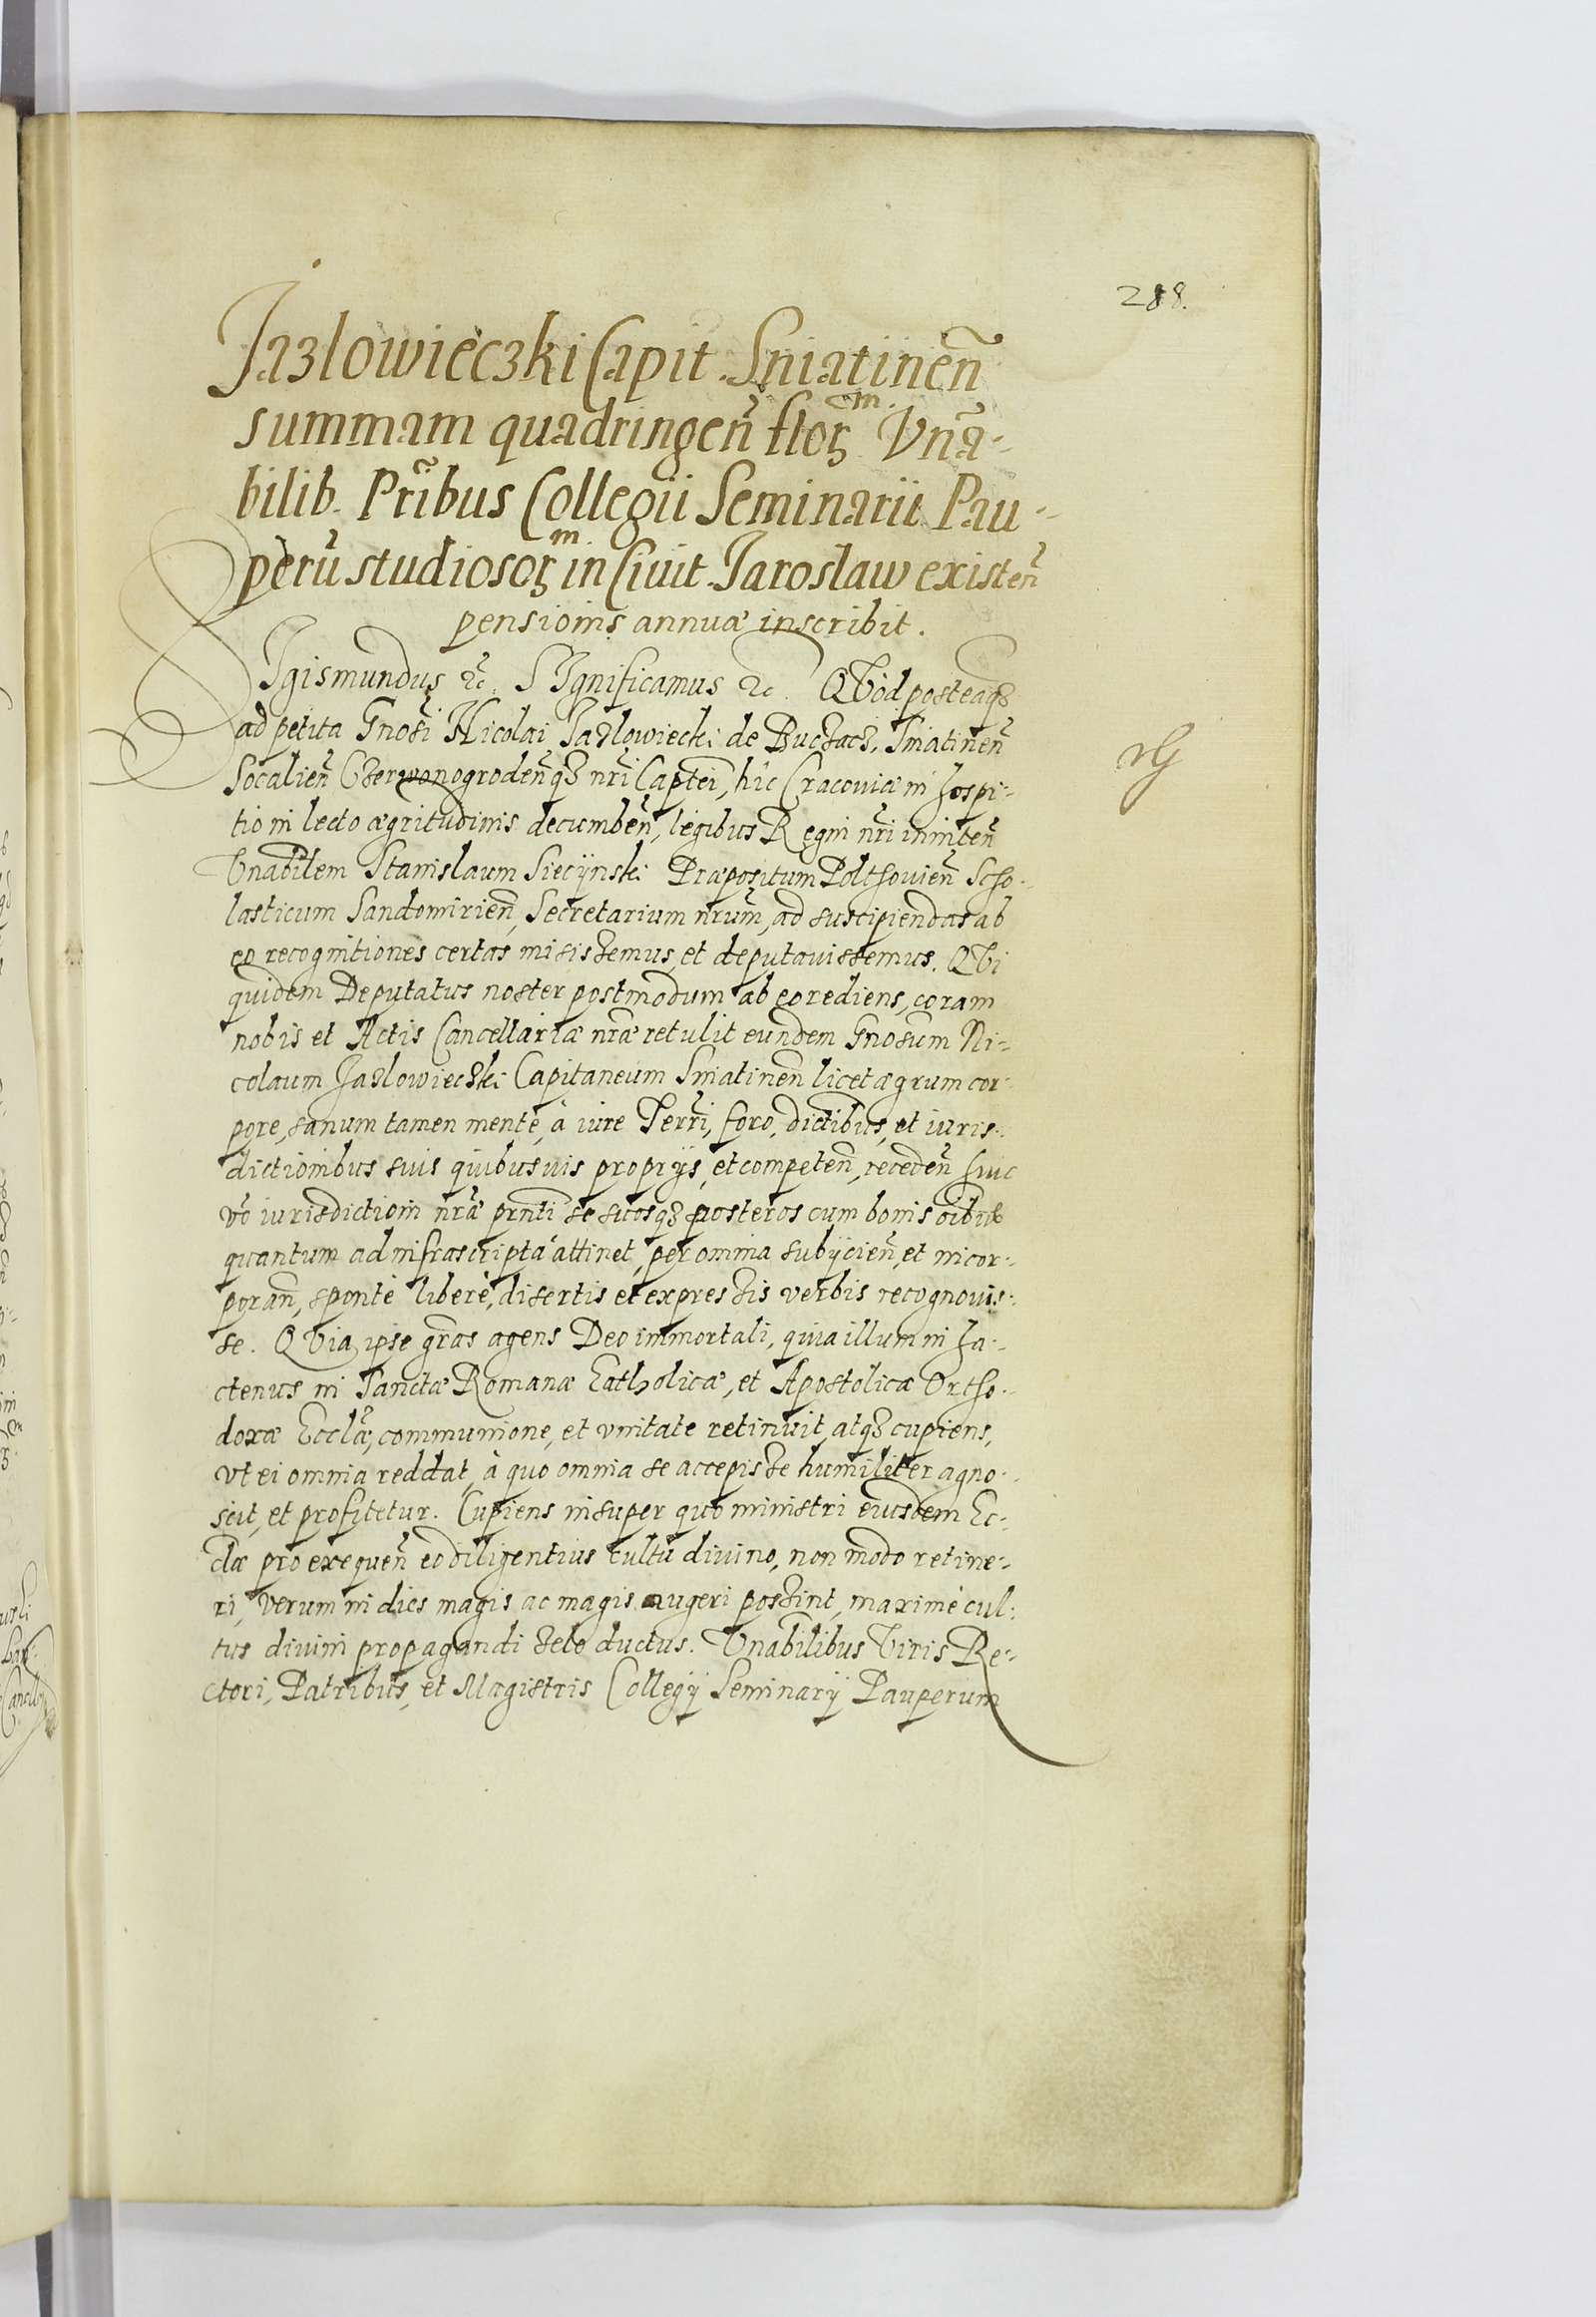 288.
Jazlowieczki Capit. Sniatineñ
summam quadringeñ florꝝ m. Vña-
bilib. Pr̃ibus Collegii Seminarii Pau-
perũ studiosorꝝ m. in Civit. Jaroslaw existeñ
pensionis annuæ inscribit.
SIgismundus etc. SIgnificamus etc. QVod posteaqʒ
ad petita Gnosi Nicolai Jazlowiecki de Buczacz, Sniatineñ
Socalieñ Czerwonogrodeñqʒ nr̃i Captei, hîc Cracoviæ in hospi-
tio in lecto ægritudinis decumbeñ, legibus Regni nr̃i inniteñ
Vnabilem Stanislaum Sieciynski Præpositum Polthovieñ Scho-
lasticum Sandomirieñ, Secretarium nr̃um, ad suscipiendas ab
eo recognitiones certas misissemus, et deputavissemus. QVi
quidem Deputatus noster postmodum ab eo rediens, coram
nobis et Actis Cancellariæ nr̃æ retulit eundem Gnosum Ni-
colaum Jazlowieczki Capitaneum Sniatineñ licet ægrum cor-
pore, sanum tamen mente, à iure Terri, foro, dictibus, et iuris-
dictionibus suis quibusvis proprijs, et competeñ, recedeñ huic
vô iurisdictioni nr̃æ prñti se suosqʒ posteros cum bonis oibus
quantum ad infrascripta attinet, per omnia subijcieñ, et incor-
porañ, spontè liberè, disertis et expressis verbis recognovis-
se. QVia ipse gr̃as agens Deo immortali, quia illum in ha-
ctenus in Sanctæ Romanæ Catholicæ, et Apostolicæ Ortho-
doxæ Ecclæ, communione, et vnitate retinuit, atqʒ cupiens,
vt ei omnia reddat, à quo omnia se accepisse humiliter agno-
scit, et profitetur. Cupiens insuper quo ministri eiusdem Ec-
clæ pro exequeñ eo diligentius cultũ divino, non modo retine-
ri, verum in dies magis ac magis augeri possint, maximè cul-
tus divini propagandi zelo ductus. Vnabilibus Viris Re-
ctori, Patribus, et Magistris Collegij Seminarij Pauperum